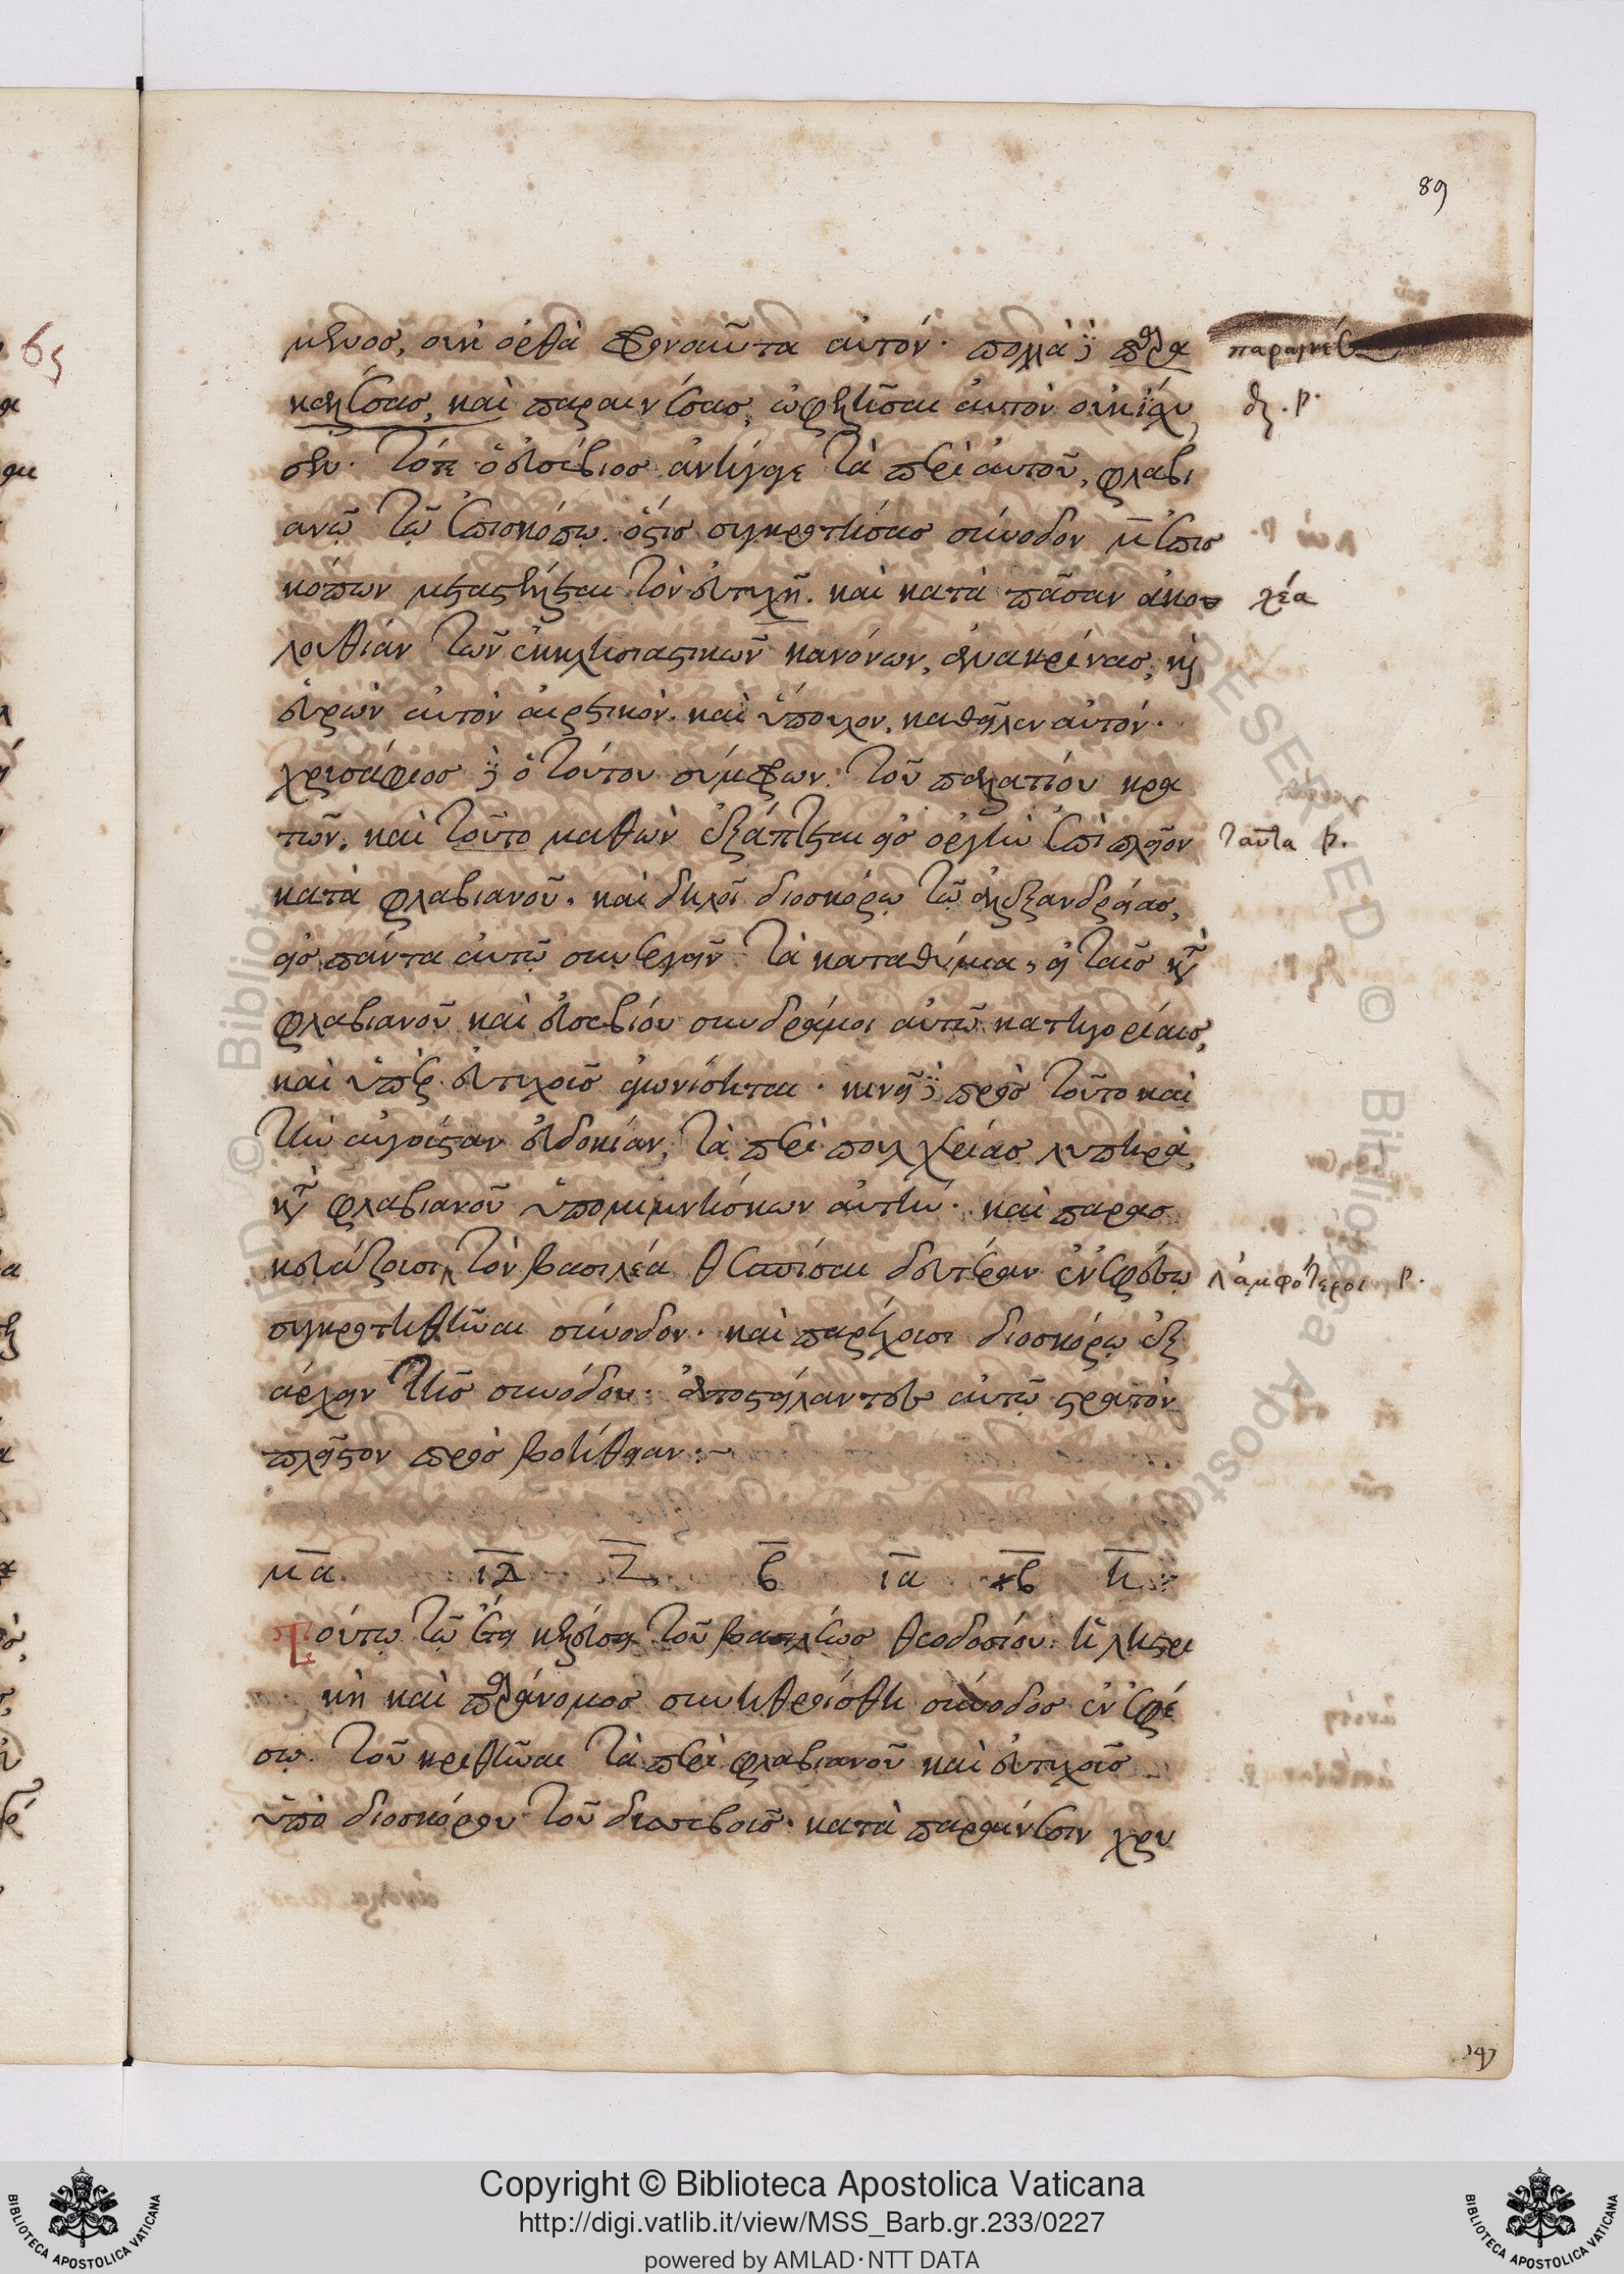 89
μενος, οὐκ ὀρθὰ φρονοῦντα αὐτόν· πολλὰ δὲ παρα
καλέσας, καὶ παραινέσας, ὠφελῆσαι αὐτὸν οὐκ ἴσχυ
σεν· τότε ὁ εὐσέβιος ἀνήγαγε τὰ περὶ αὐτοῦ, φλαβι
ανῷ τῷ ἐπισκόπῳ. ὅστις συγκροτήσας σύνοδον μ ἐπισ
κόπων μεταστέλλεται τὸν εὐτυχῆ. καὶ κατὰ πᾶσαν ἀκο
λουθίαν τῶν ἐκκλησιαστικῶν κανόνων, ἀνακρίνας, καὶ
εὑρὼν αὐτὸν αἱρετικὸν. καὶ ὕπουλον. καθεῖλεν αὐτόν·
χρυσάφιος δὲ ὁ τούτου σύμφρων. τοῦ παλατίου κρα
τῶν, καὶ τοῦτο μαθὼν ἐξάπτεται εἰς ὀργὴν ἐπὶ πλεῖον
ταῦτα P.
κατὰ φλαβιανοῦ. καὶ δηλοῖ διοσκόρῳ τῷ ἀλεξανδρείας,
εἰς πάντα αὐτῷ συνεργεῖν τὰ καταθύμια, εἰ ταῖς κατὰ
φλαβιανοῦ καὶ εὐσεβίου συνδράμοι αὐτῷ κατηγορίαις,
καὶ ὑπὲρ εὐτυχοῦς ἀγωνίσηται. κινεῖ δὲ πρὸς τοῦτο καὶ
τὴν αὐγοῦσταν εὐδοκίαν, τὰ περὶ πουλχερίας λυπηρὰ,
κατὰ φλαβιανοῦ ὑπομιμνήσκων αὐτήν. καὶ παρασ
κευάζουσι τὸν βασιλέα θεσπίσαι δευτέραν ἐν ἐφέσῳ
ἀμφότεροι P.
συγκροτηθῆναι σύνοδον. καὶ παρέχουσι διοσκόρῳ ἐξ
άρχειν τῆς συνόδου. ἀποστείλαντες αὐτῷ στρατὸν
πλεῖστον πρὸς βοήθειαν:~
μα ιζ ζ β ια κβ η
Τούτῳ τῷ ἔτει κελεύσει τοῦ βασιλέως θεοδοσίου. ἡ λῃστρι
κὴ καὶ παράνομος συνηθροίσθη σύνοδος ἐν ἐφέ
σῳ. τοῦ κριθῆναι τὰ περὶ φλαβιανοῦ καὶ εὐτυχοῦς
ὑπὸ διοσκόρου τοῦ δυσσεβοῦς. κατὰ παραίνεσιν χρυ
Copyright © Biblioteca Apostolica Vaticana
http://digi.vatlib.it/view/MSS_Barb.gr.233/0227
powered by AMLAD·NTT DATA